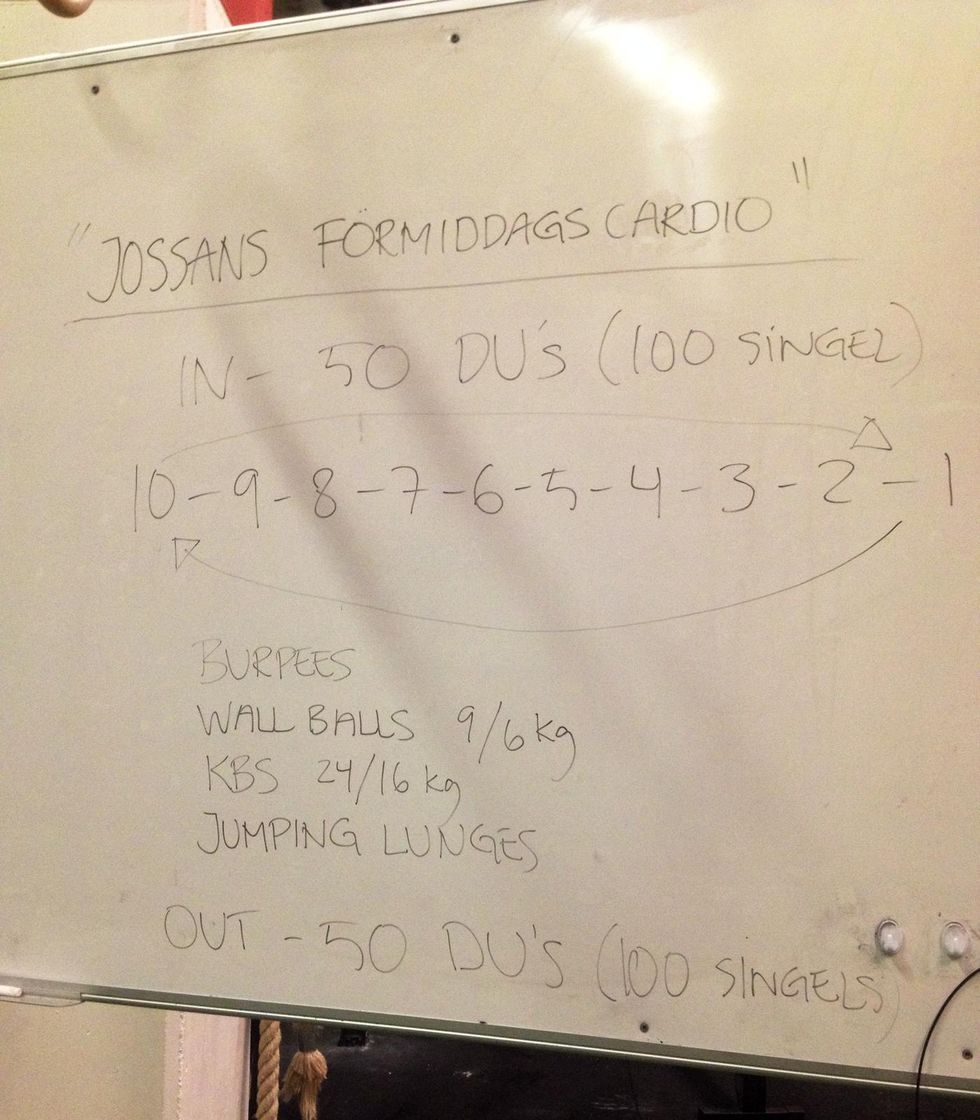 "JOSSANS FÖRMIDDAGSCARDIO"
IN- 50 DU's (100 SiNGEL)
10-9-8-7-6-5-4-3-2-1
BURPEES
WALL BALLS 9/6 kg
KBS 24/16 kg
JUMPING LUNGES
OUT - 50 DU's (100 SINGELS)